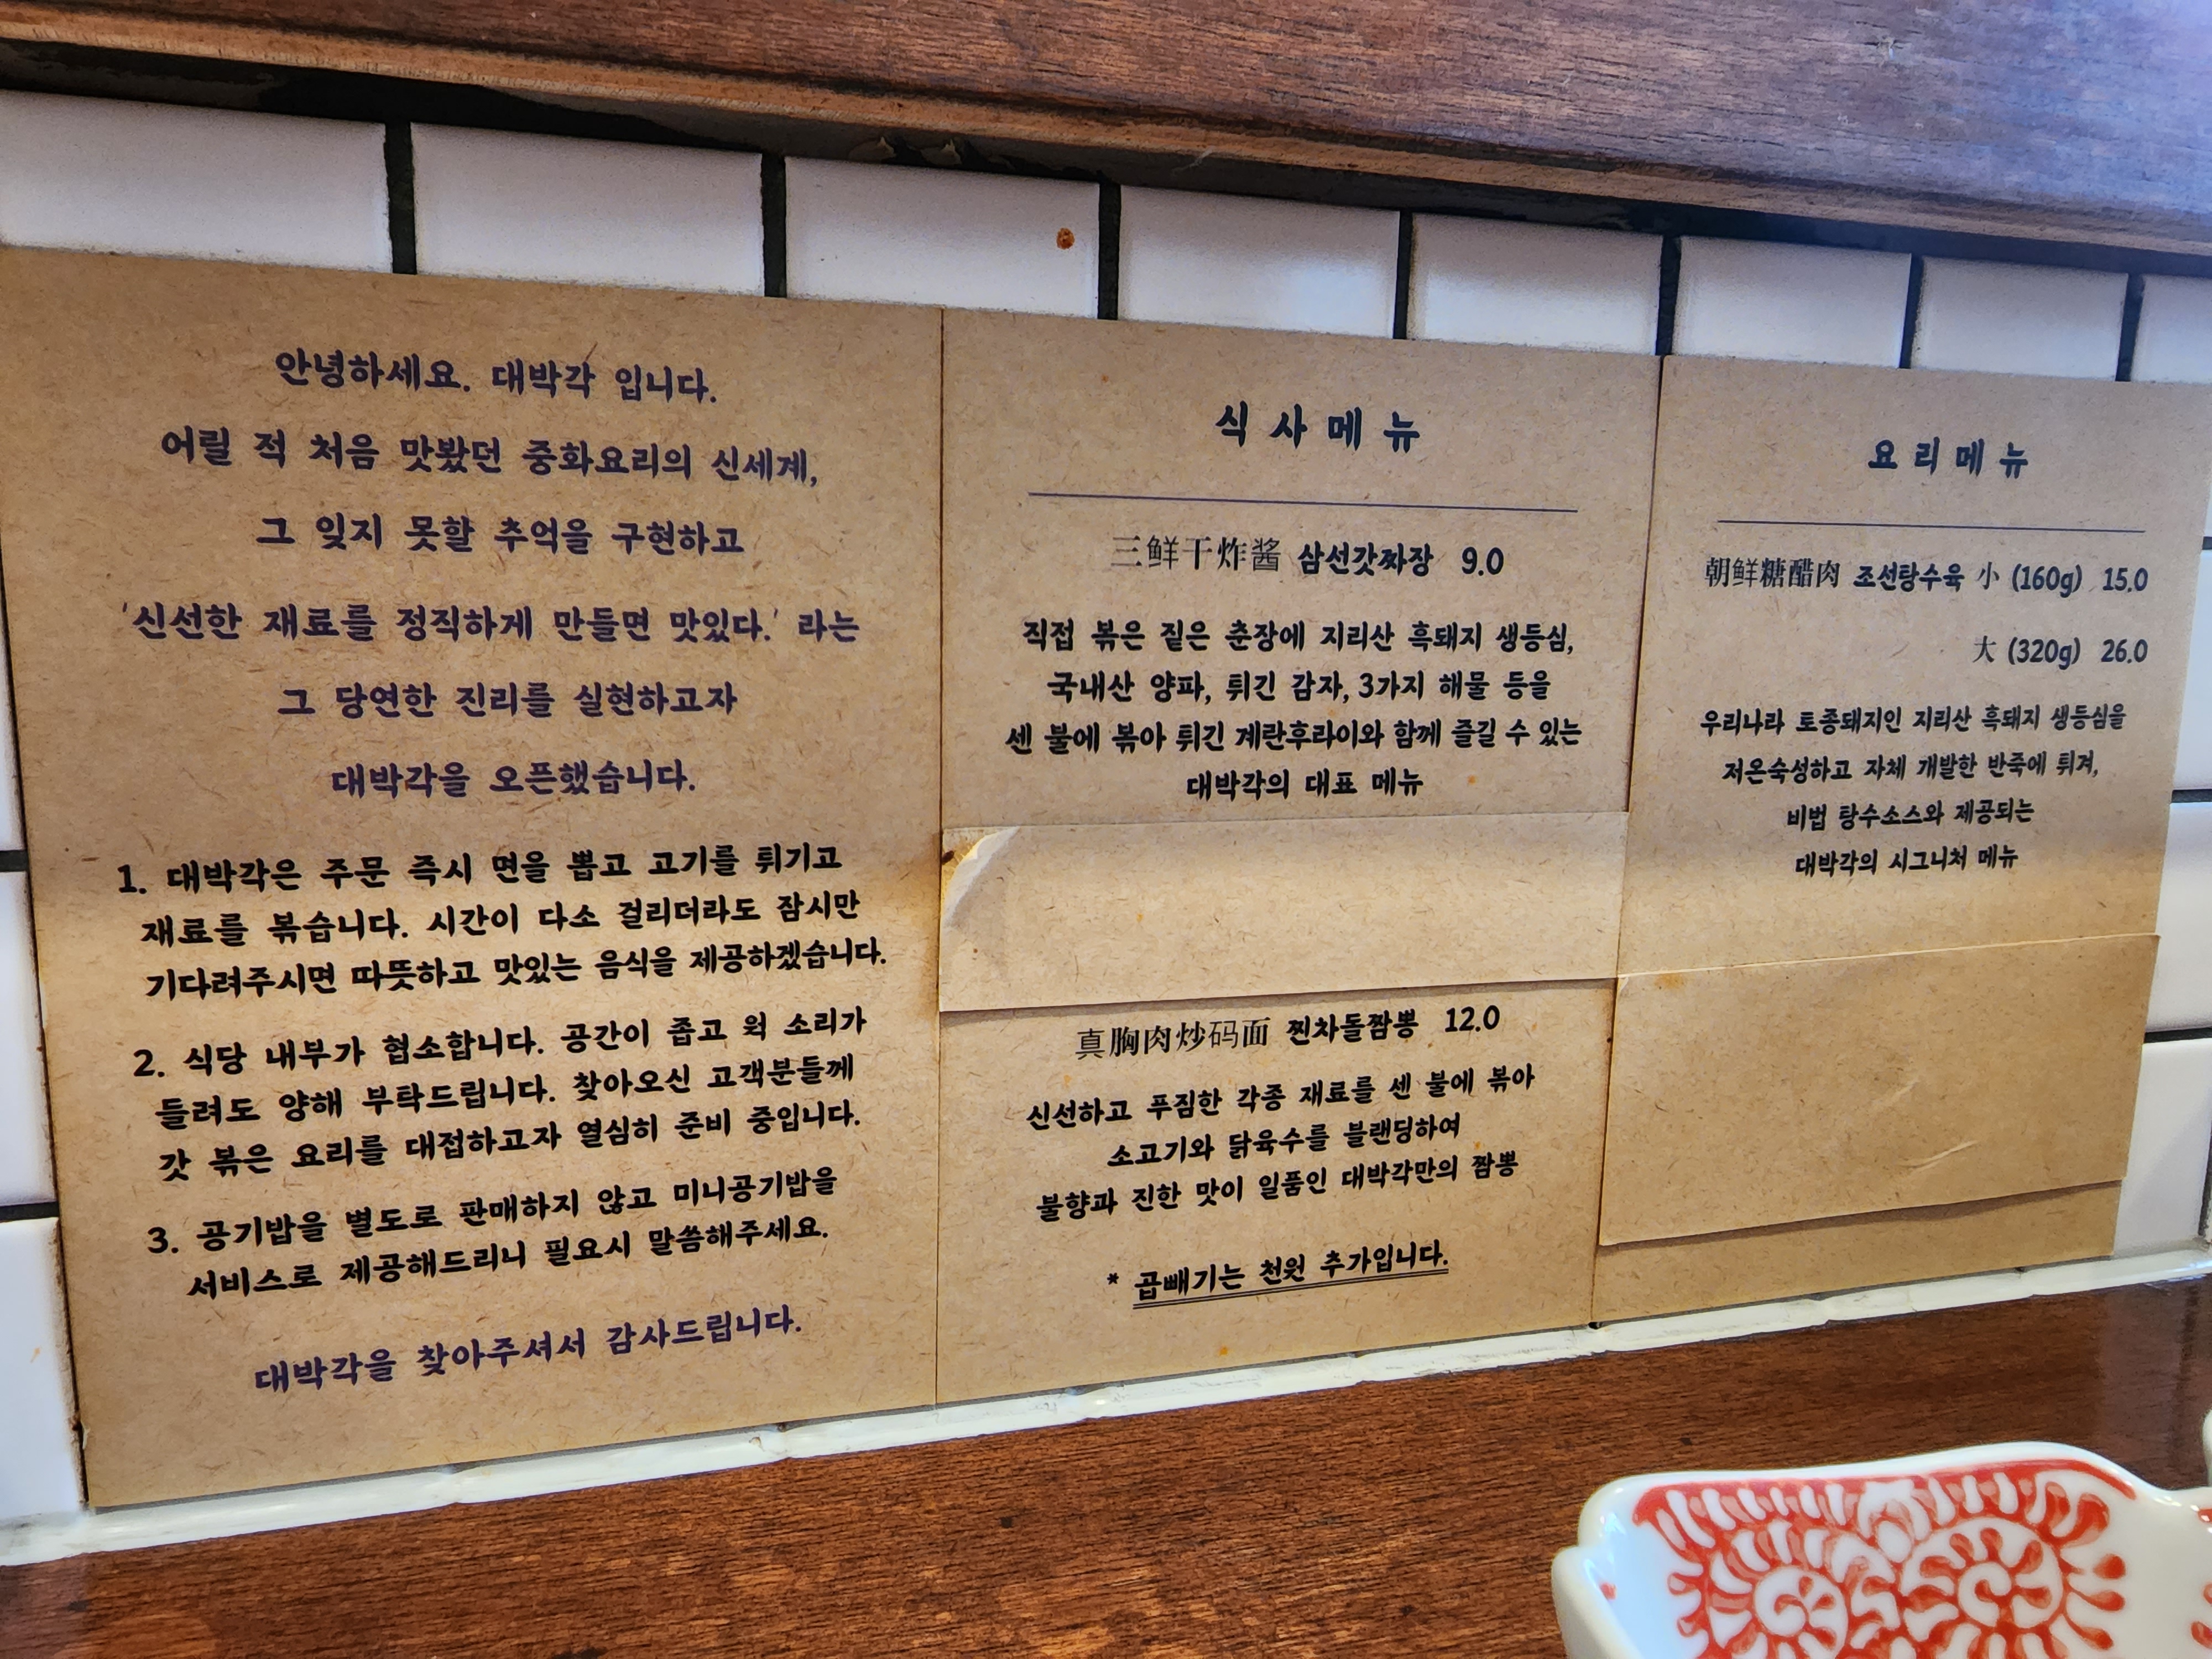 안녕하세요. 대박각 입니다.
어릴 적 처음 맛봤던 중화요리의 신세계,
그 잊지 못할 추억을 구현하고
'신선한 재료를 정직하게 만들면 맛있다.' 라는
그 당연한 진리를 실현하고자
대박각을 오픈했습니다.
1. 대박각은 주문 즉시 면을 뽑고 고기를 튀기고
재료를 볶습니다. 시간이 다소 걸리더라도 잠시만
기다려주시면 따뜻하고 맛있는 음식을 제공하겠습니다.
2. 식당 내부가 협소합니다. 공간이 좁고 웍 소리가
들려도 양해 부탁드립니다. 찾아오신 고객분들께
갓 볶은 요리를 대접하고자 열심히 준비 중입니다.
3. 공기밥을 별도로 판매하지 않고 미니공기밥을
서비스로 제공해드리니 필요시 말씀해주세요.
대박각을 찾아주셔서 감사드립니다.
식사메뉴
三鲜干炸酱 삼선갓짜장 9.0
직접 볶은 짙은 춘장에 지리산 흑돼지 생등심,
국내산 양파, 튀긴 감자, 3가지 해물 등을
센 불에 볶아 튀긴 계란후라이와 함께 즐길 수 있는
대박각의 대표 메뉴
真胸肉炒码面 찐차돌짬뽕 12.0
신선하고 푸짐한 각종 재료를 센 불에 볶아
소고기와 닭육수를 블랜딩하여
불향과 진한 맛이 일품인 대박각만의 짬뽕
* 곱빼기는 천원 추가입니다.
요리메뉴
朝鲜糖醋肉 조선탕수육 小 (160g) 15.0
大 (320g) 26.0
우리나라 토종돼지인 지리산 흑돼지 생등심을
저온숙성하고 자체 개발한 반죽에 튀겨,
비법 탕수소스와 제공되는
대박각의 시그니처 메뉴